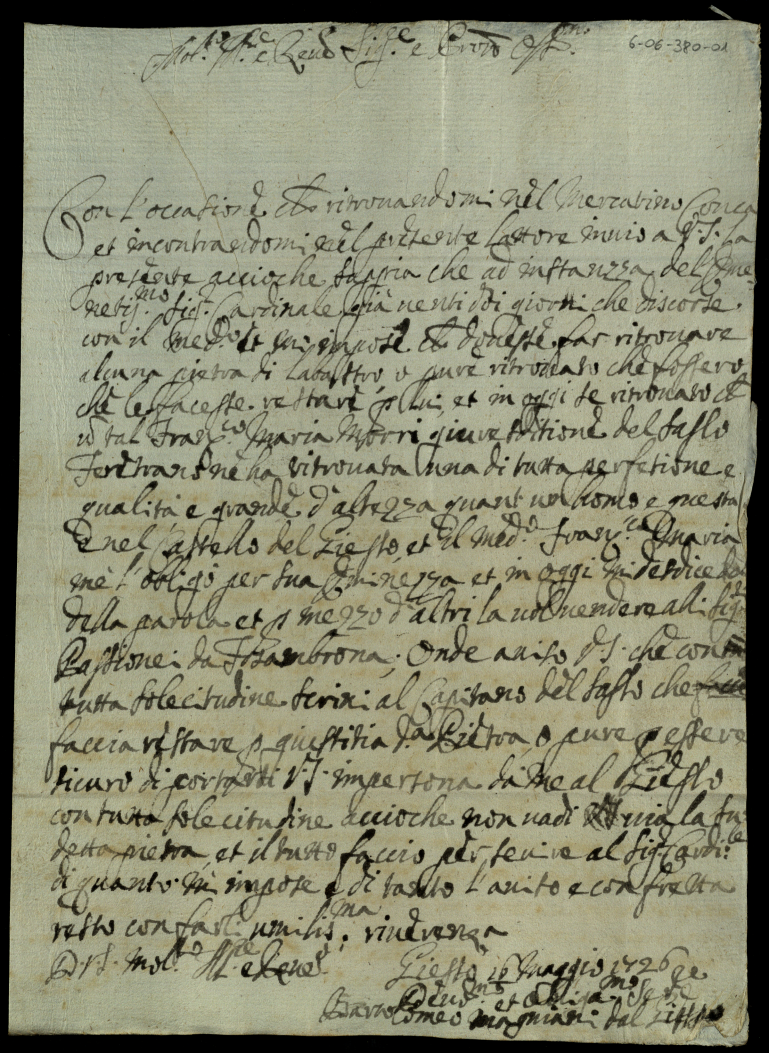 Mol.to Ill.re e Rend Sig.re e Pron Oss.mo
6-06-380-01
Con l'occasione ch ritrouandomi nel Mercatino Conca
et incontrandomi nel presente lattore inuio a V.S. la
presente accioche sappia che ad instanzza del Eme
netis.mo Sig.r Cardinale già uenti doi giorni che discorse
con il med.o et mi impose ch douesse far ritrouare
alcuna pietra di labastro o pure ritrouato che fossero
che le facesse restare p lui, et in oggi se ritrouato ch
u tal Franc.co Maria Morri giuresditione del Sasso
Feretrano ne ha ritrouata una di tutta perfetione e
qualità e grande d'altezza quant un homo e questa
e nel Castello del Giesso, et il med.o Franc.co Maria
me l'obligò per sua Eminezza et in oggi mi desdice
della parola et p mezzo d'altri la uol uendere alli Sig.ri
Passionei da Fosambrona; Onde auiso V.S. che con
tutta solecitudine scriui al Capitano del Sasso che
faccia restare p giustitia d.a Pietra o pure p essere
sicuro di portarsi V.S. impersona da me al Giesso
con tutta solecitudine accioche non uadi uia la su
detta pietra, et il tutto faccio per seruire al Sig.r Cardi.le
di quanto mi impose e di tanto l'auiso e con fretta
resto con farli umilis.ma riuerenza
D V.S. Mol.to Ill.re e Rend.
Giesso 16 Maggio 1726
Deuo.mo et Obliga.mo Se.re
Bartolomeo Magnani dal Giesso